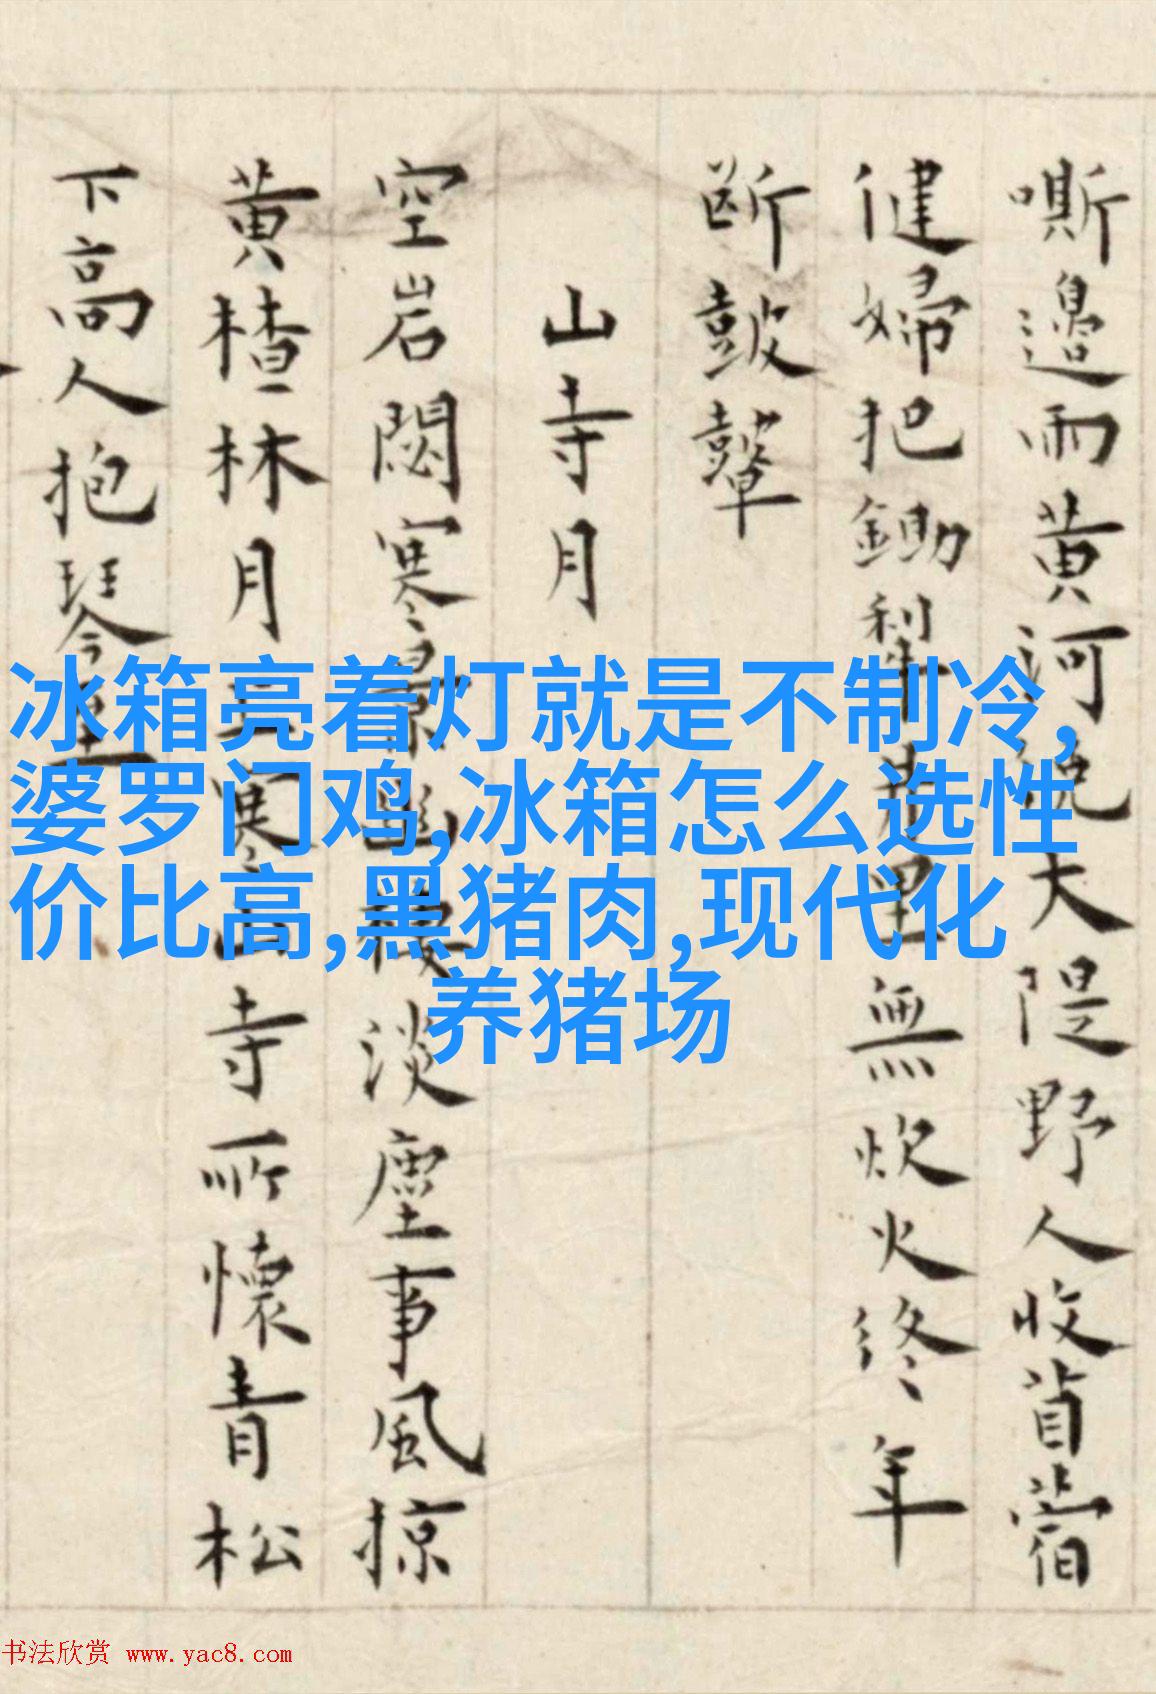 嘶邊雨黃河繞大隄野人收苜蓿
健婦把鋤犁里無炊火終年
斷皷鼙
山寺月
空岩閟寒景幽淡塵事風掠
黃楂林月寒山寺所懷青松
下高人抱琴
冰箱亮着灯就是不制冷,
婆罗门鸡,冰箱怎么选性
价比高,黑猪肉,现代化
养猪场
书法欣赏 www.yac8.com